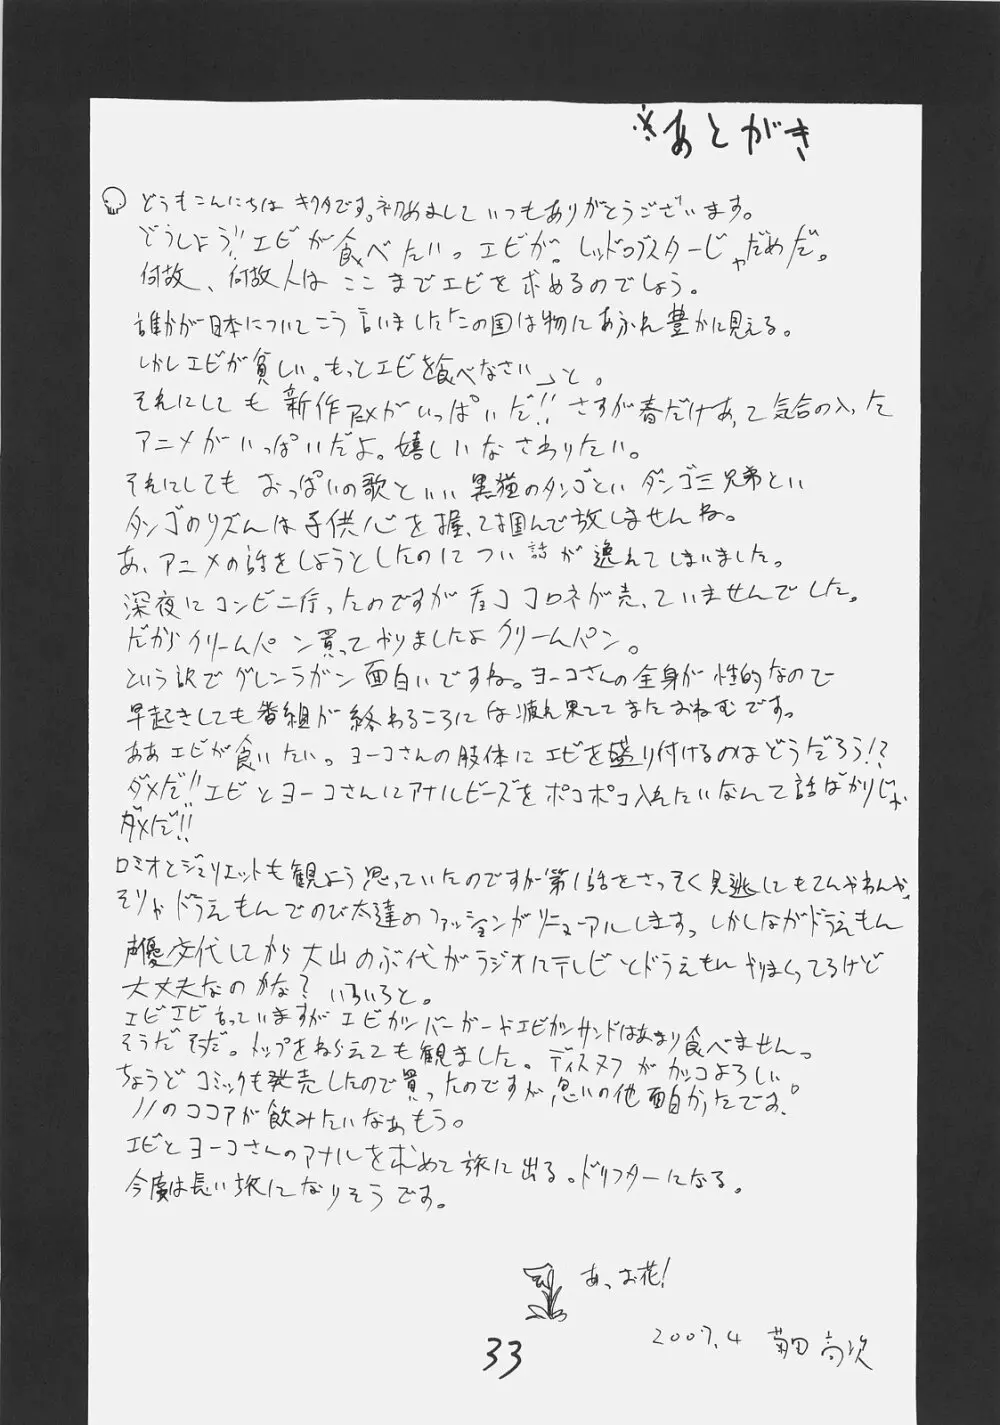 ※あとがき
どうもこんにちは キクタです。初めまして いつもありがとうございます。
どうしよう!!エビが食べたいっ エビが。レッドロブスターじゃだめだ。
何故、何故人は ここまでエビを求めるのでしょう。
誰かが日本についてこう言いました「この国は物にあふれ豊かに見える。
しかしエビが貧しい。もっとエビを食べなさい」と。
それにしても 新作アニメがいっぱいだ!! さすが春だけあって気合の入った
アニメがいっぱいだよ。嬉しいなさわりたい。
それにしても おっぱいの歌といい 黒猫のタンゴといい ダンゴ三兄弟といい
タンゴのリズムは子供心を握って掴んで放しませんね。
あ、アニメの話をしようとしたのについ話が逸れてしまいました。
深夜にコンビニ行ったのですがチョココロネが売っていませんでした。
だからクリームパン買ってやりましたよクリームパン。
という訳でグレンラガン面白いですね。ヨーコさんの全身が性的なので
早起きしても番組が終わるころには疲れ果ててまたおねむです。
ああエビが食いたい。ヨーコさんの肢体にエビを盛り付けるのはどうだろう!?
ダメだ!!エビとヨーコさんにアナルビーズをポコポコ入れたいなんて話ばかりじゃ
ダメだ!!
ロミオとジュリエットも観よう思っていたのですが第1話をさっそく見逃してもてんやわんや、
そりゃドラえもんでのび太達のファッションがリニューアルしますっしかしながらドラえもん
声優交代してから大山のぶ代がラジオにテレビとドラえもんやりまくってるけど
大丈夫なのかな?いろいろと。
エビエビ言っていますがエビカツバーガーやエビカツサンドはあまり食べませんっ
そうだそうだ。トップをねらえ2も観ました。ディスヌフがカッコよろしい
ちょうどコミックも発売したので買ったのですが思いの他面白かったです。
ノノのココアが飲みたいなぁもう。
エビとヨーコさんのアナルを求めて旅に出る。ドリフターになる。
今度は長い旅になりそうです。
あっお花!
2007.4 菊田高次
33